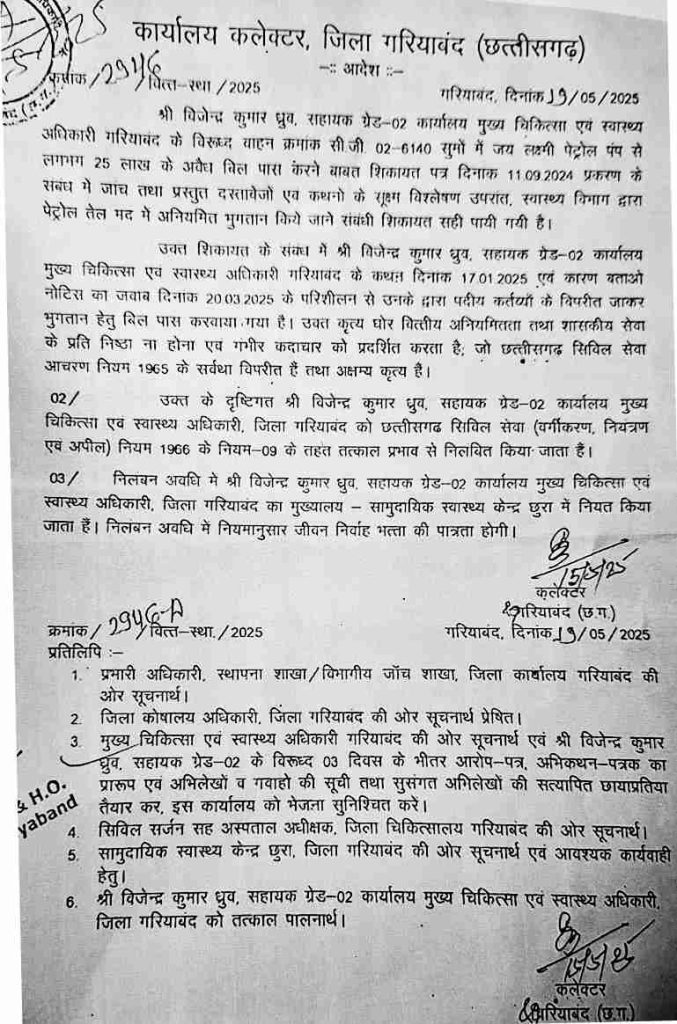 कार्यालय कलेक्टर, जिला गरियाबंद (छत्तीसगढ़)
-:: आदेश ::-
क्रमांक/2946/वित्त-स्था/2025
गरियाबंद, दिनांक 19/05/2025
श्री विजेन्द्र कुमार ध्रुव, सहायक ग्रेड-02 कार्यालय मुख्य चिकित्सा एवं स्वास्थ्य
अधिकारी गरियाबंद के विरूध्द वाहन क्रमांक सी.जी. 02-6140 सुमों में जय लक्ष्मी पेट्रोल पंप से
लगभग 25 लाख के अवैध बिल पास करने बाबत शिकायत पत्र दिनांक 11.09.2024 प्रकरण के
संबंध में जांच तथा प्रस्तुत दस्तावेजों एव कथनो के सूक्ष्म विश्लेषण उपरांत, स्वास्थ्य विभाग द्वारा
पेट्रोल तेल मद में अनियमित भुगतान किये जाने संबंधी शिकायत सही पायी गयी है।
उक्त शिकायत के संबंध में श्री विजेन्द्र कुमार ध्रुव, सहायक ग्रेड-02 कार्यालय
मुख्य चिकित्सा एवं स्वास्थ्य अधिकारी गरियाबंद के कथन दिनांक 17.01.2025 एवं कारण बताओ
नोटिस का जवाब दिनांक 20.03.2025 के परिशीलन से उनके द्वारा पदीय कर्तव्यों के विपरीत जाकर
भुगतान हेतु बिल पास करवाया गया है। उक्त कृत्य घोर वित्तीय अनियमितता तथा शासकीय सेवा
के प्रति निष्ठा ना होना एव गंभीर कदाचार को प्रदर्शित करता है; जो छत्तीसगढ़ सिविल सेवा
आचरण नियम 1965 के सर्वथा विपरीत हैं तथा अक्षम्य कृत्य हैं।
02/ उक्त के दृष्टिगत श्री विजेन्द्र कुमार ध्रुव, सहायक ग्रेड-02 कार्यालय मुख्य
चिकित्सा एवं स्वास्थ्य अधिकारी, जिला गरियाबंद को छत्तीसगढ़ सिविल सेवा (वर्गीकरण, नियंत्रण
एवं अपील) नियम 1966 के नियम-09 के तहत तत्काल प्रभाव से निलंबित किया जाता हैं।
03/ निलंबन अवधि मे श्री विजेन्द्र कुमार ध्रुव, सहायक ग्रेड-02 कार्यालय मुख्य चिकित्सा एवं
स्वास्थ्य अधिकारी, जिला गरियाबंद का मुख्यालय – सामुदायिक स्वास्थ्य केन्द्र छुरा में नियत किया
जाता हैं। निलंबन अवधि में नियमानुसार जीवन निर्वाह भत्ता की पात्रता होगी।
15/5/25
कलेक्टर
गरियाबंद (छ.ग.)
क्रमांक/2946-A/वित्त-स्था./2025
गरियाबंद, दिनांक 19/05/2025
प्रतिलिपि :-
1. प्रभारी अधिकारी, स्थापना शाखा/विभागीय जॉच शाखा, जिला कार्यालय गरियाबंद की
ओर सूचनार्थ।
2. जिला कोषालय अधिकारी, जिला गरियाबंद की ओर सूचनार्थ प्रेषित।
3. मुख्य चिकित्सा एवं स्वास्थ्य अधिकारी गरियाबंद की ओर सूचनार्थ एवं श्री विजेन्द्र कुमार
ध्रुव, सहायक ग्रेड-02 के विरूध्द 03 दिवस के भीतर आरोप-पत्र, अभिकथन-पत्रक का
प्रारूप एवं अभिलेखों व गवाहो की सूची तथा सुसंगत अभिलेखों की सत्यापित छायाप्रतिया
तैयार कर, इस कार्यालय को भेजना सुनिश्चित करें।
& H.O.
yaband
4. सिविल सर्जन सह अस्पताल अधीक्षक, जिला चिकित्सालय गरियाबंद की ओर सूचनार्थ।
5. सामुदायिक स्वास्थ्य केन्द्र छुरा, जिला गरियाबंद की ओर सूचनार्थ एवं आवश्यक कार्यवाही
हेतु।
6. श्री विजेन्द्र कुमार ध्रुव, सहायक ग्रेड-02 कार्यालय मुख्य चिकित्सा एवं स्वास्थ्य अधिकारी,
जिला गरियाबंद को तत्काल पालनार्थ।
कलेक्टर
गरियाबंद (छ.ग.)